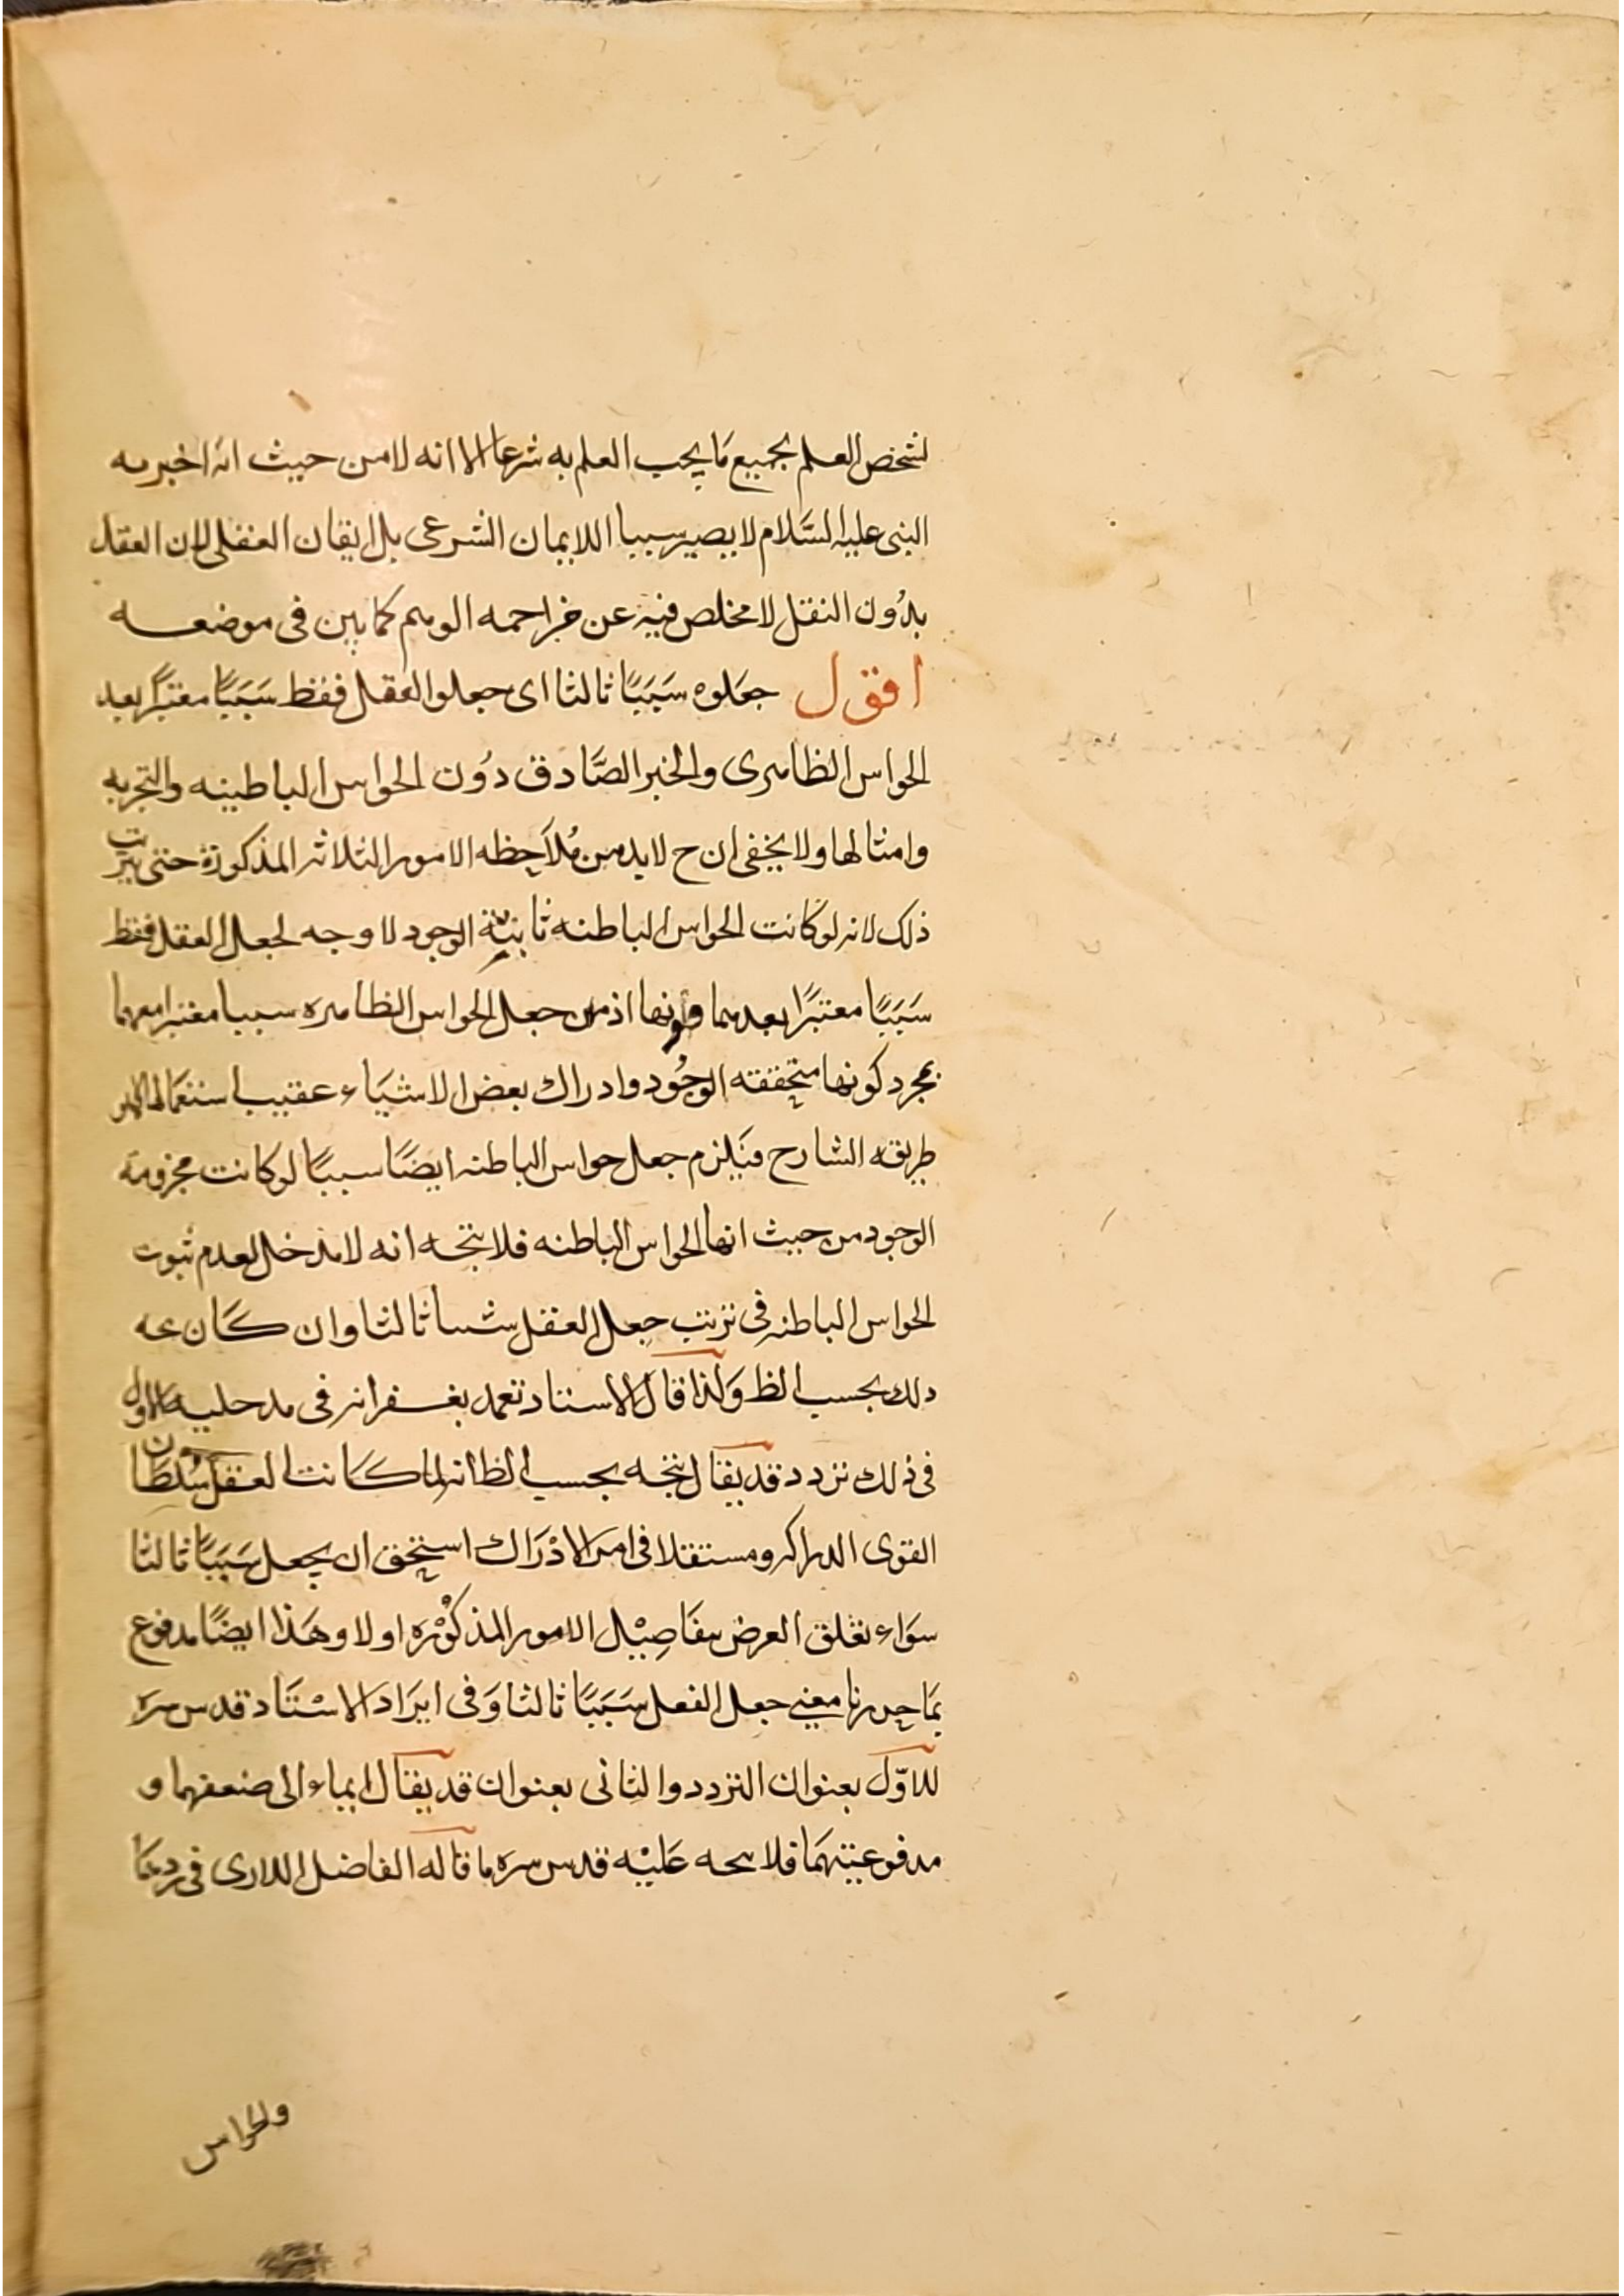 لشخص العلم بجميع مَا يجب العلم به شرعا الا انه لا من حيث انه اخبر به
النبى عليه السَّلام لا يصير سببا اللايمان الشرعى بل ايقان العقلى لان العقل
بدُون النقل لا مخلص فيه عن مزاحمه الوهم كما بين فى موضعه
اقول جعَلوه سَبَبًا ثالثا اى جعلوا العقل فقظ سَبَبًا معتبرًا بعد
الحواس الظاهرى والخبر الصَّادق دُون الحواس الباطينه والتجربه
وامثالها ولا يخفى ان ح لابد من مُلاَحِظه الامور الثلاثه المذكورة حتى يترتب
ذلك لانه لو كانت الحواس الباطنه ثابتة الوجود لا وجه لجعل العقل فقظ
سَبَبًا معتبرًا بعدهما دونها اذ من جعل الحواس الظاهره سببا معتبرا معهما
بمجرد كونها متحققه الوجُود وادراك بعض الاشيَاء عقيب استعمَالها
طريقه الشارح فيَلزم جعل حواس الباطنه ايضًا سببًا لو كانت مجزومة
الوجود من حيث انها الحواس الباطنه فلا يتجه انه لا مدخل لعدم ثبوت
الحواس الباطنه فى ترتب جعل العقل شسا ثالثا وان كَان عه
دلك بحسب الظ وَلذا قال الاستاد تغمد بغفرانه فى مدحليه الاول
فى ذلك تردد قد يقال يتجه بحسب الظ انه لما كَانت العقل سُلطَان
القوى الدراكه ومستقلا فى امر الادْرَاك استحق ان يجعل سَبَبًا ثالثا
سوَاء تعلق العرض بتفَاصِيْل الامور المذكوْره اولا وهَذا ايضًا مدفوع
بمَا حررنا معنى جعل الفعل سَبَبًا ثالثا وَفى ايرَاد الاسْتَاد قدس سره
للاوّل بعنوان التردد والثانى بعنوان قد يقال ايماء الى ضعفهما و
مدفوعيتهمَا فلا يتجه عَليْه قدس سره ما قاله الفاضل اللارى فى رد
والحواس